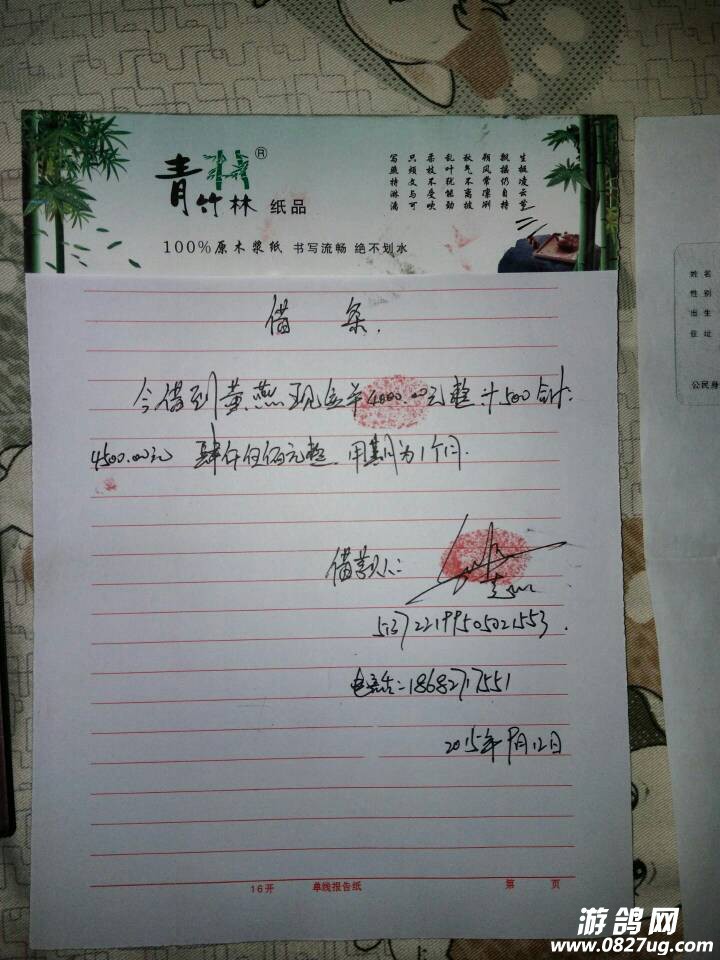 青竹林® 纸品
100%原木浆纸 书写流畅 绝不划水
生挺凌云节
飘摇仍自持
朔风常凛冽
秋气不离披
乱叶犹能劲
柔枝不受吹
只烦文与可
写照特淋漓
借 条.
今借到黄燕现金单4000.00元整 计500 合计:
4500.00元 肆仟伍佰元整. 用期为1个月.
借款人:
电话:18682717551
2015年9月12日
16开 单线报告纸 第 页
姓名
性别
出生
住址
公民身
游鸽网
www.0827ug.com